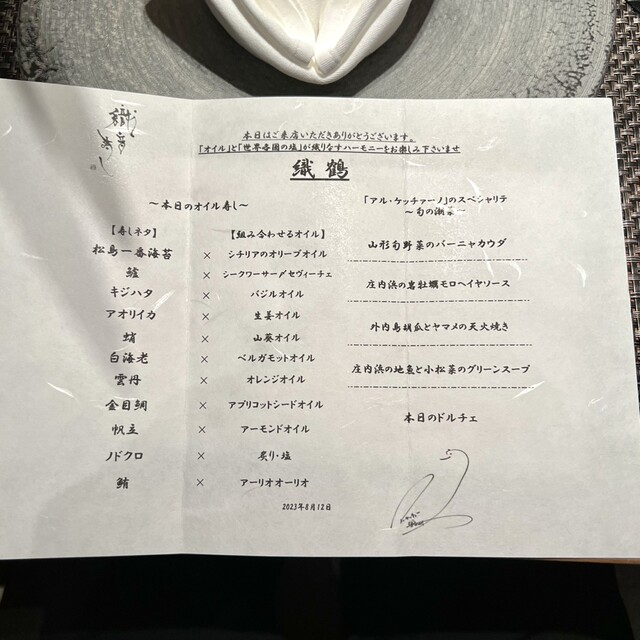 本日はご来店いただきありがとうございます。
「オイル」と「世界各国の塩」が織りなすハーモニーをお楽しみ下さいませ
織鶴
～本日のオイル寿し～
【寿しネタ】 【組み合わせるオイル】
松島一番海苔 × シチリアのオリーブオイル
鱸 × シークワーサー／セヴィーチェ
キジハタ × バジルオイル
アオリイカ × 生姜オイル
蛸 × 山葵オイル
白海老 × ベルガモットオイル
雲丹 × オレンジオイル
金目鯛 × アプリコットシードオイル
帆立 × アーモンドオイル
ノドクロ × 炙り・塩
鮪 × アーリオオーリオ
2023年8月12日
「アル・ケッチァーノ」のスペシャリテ
～旬の潮菜～
山形旬野菜のバーニャカウダ
庄内浜の岩牡蠣モロヘイヤソース
外内島胡瓜とヤマメの天火焼き
庄内浜の地魚と小松菜のグリーンスープ
本日のドルチェ